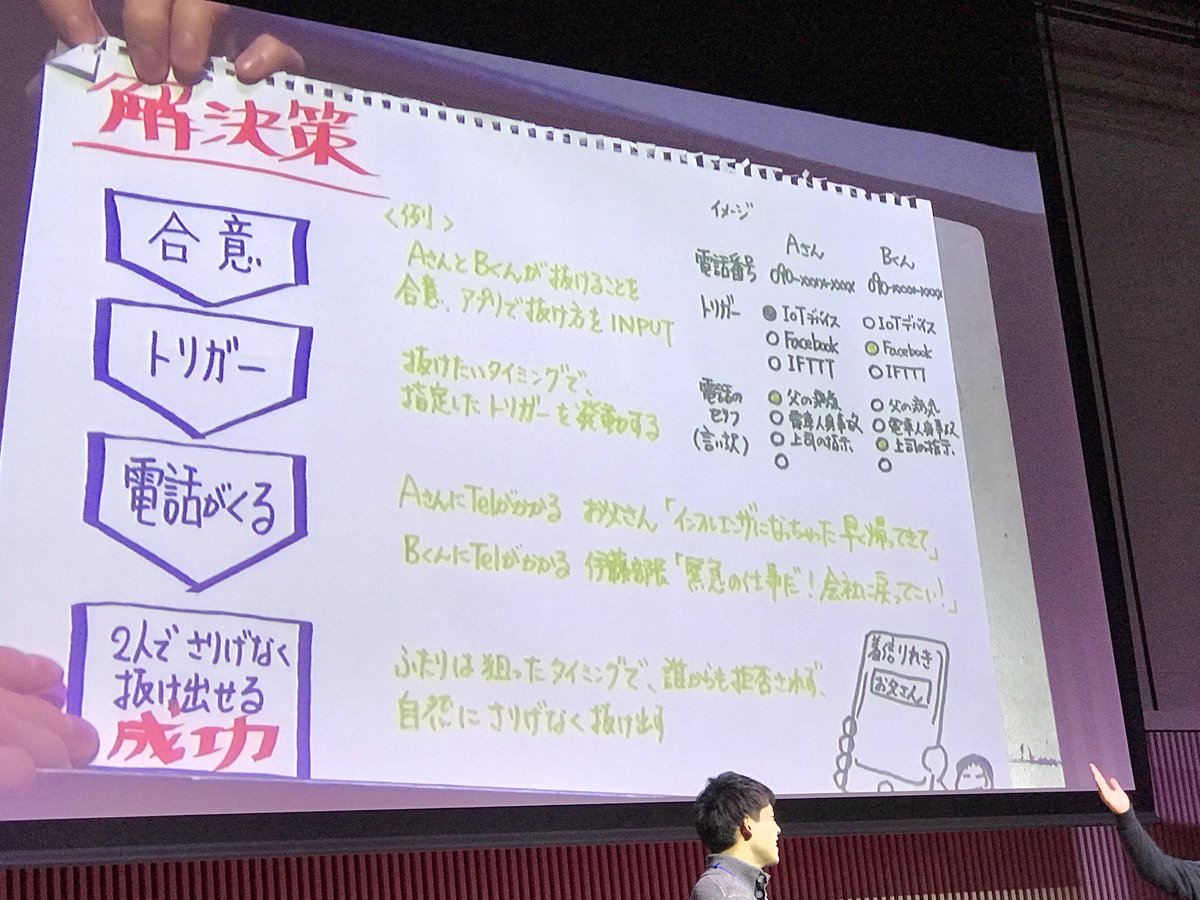 解決策
合意
<例>
AさんとBくんが抜けることを
合意、アプリで抜け方をINPUT
トリガー
抜けたいタイミングで、
指定したトリガーを発動する
電話がくる
AさんにTelがかかる お父さん「インフルエンザになっちゃった早く帰ってきて」
BくんにTelがかかる 伊藤部長「緊急の仕事だ!会社に戻ってこい!」
2人でさりげなく
抜け出せる
成功
ふたりは狙ったタイミングで、誰からも拒否されず、
自然にさりげなく抜け出す
イメージ
Aさん Bくん
電話番号 090-xxxx-xxxx 090-xxxx-xxxx
トリガー IoTデバイス IoTデバイス
Facebook Facebook
IFTTT IFTTT
電話の 父の病気 父の病気
セリフ 電車人身事故 電車人身事故
(言い訳) 上司の指示 上司の指示
着信りれき
お父さん